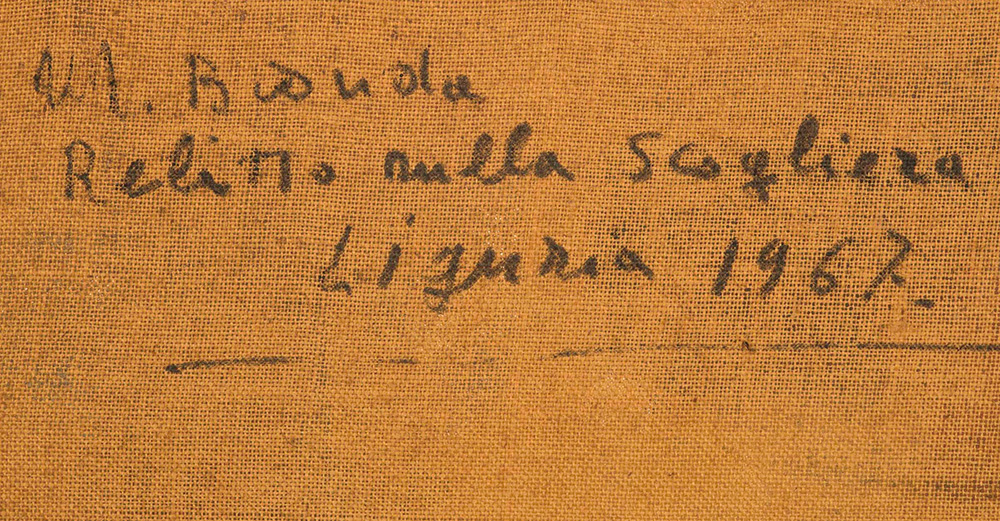 M. Bionda
Relitto sulla Scogliera
Liguria 1967.